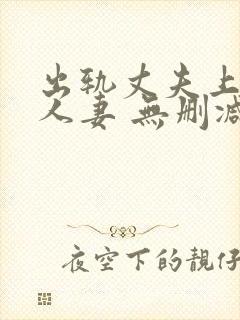 出轨丈夫上
人妻 無刪減
夜空下的靚仔